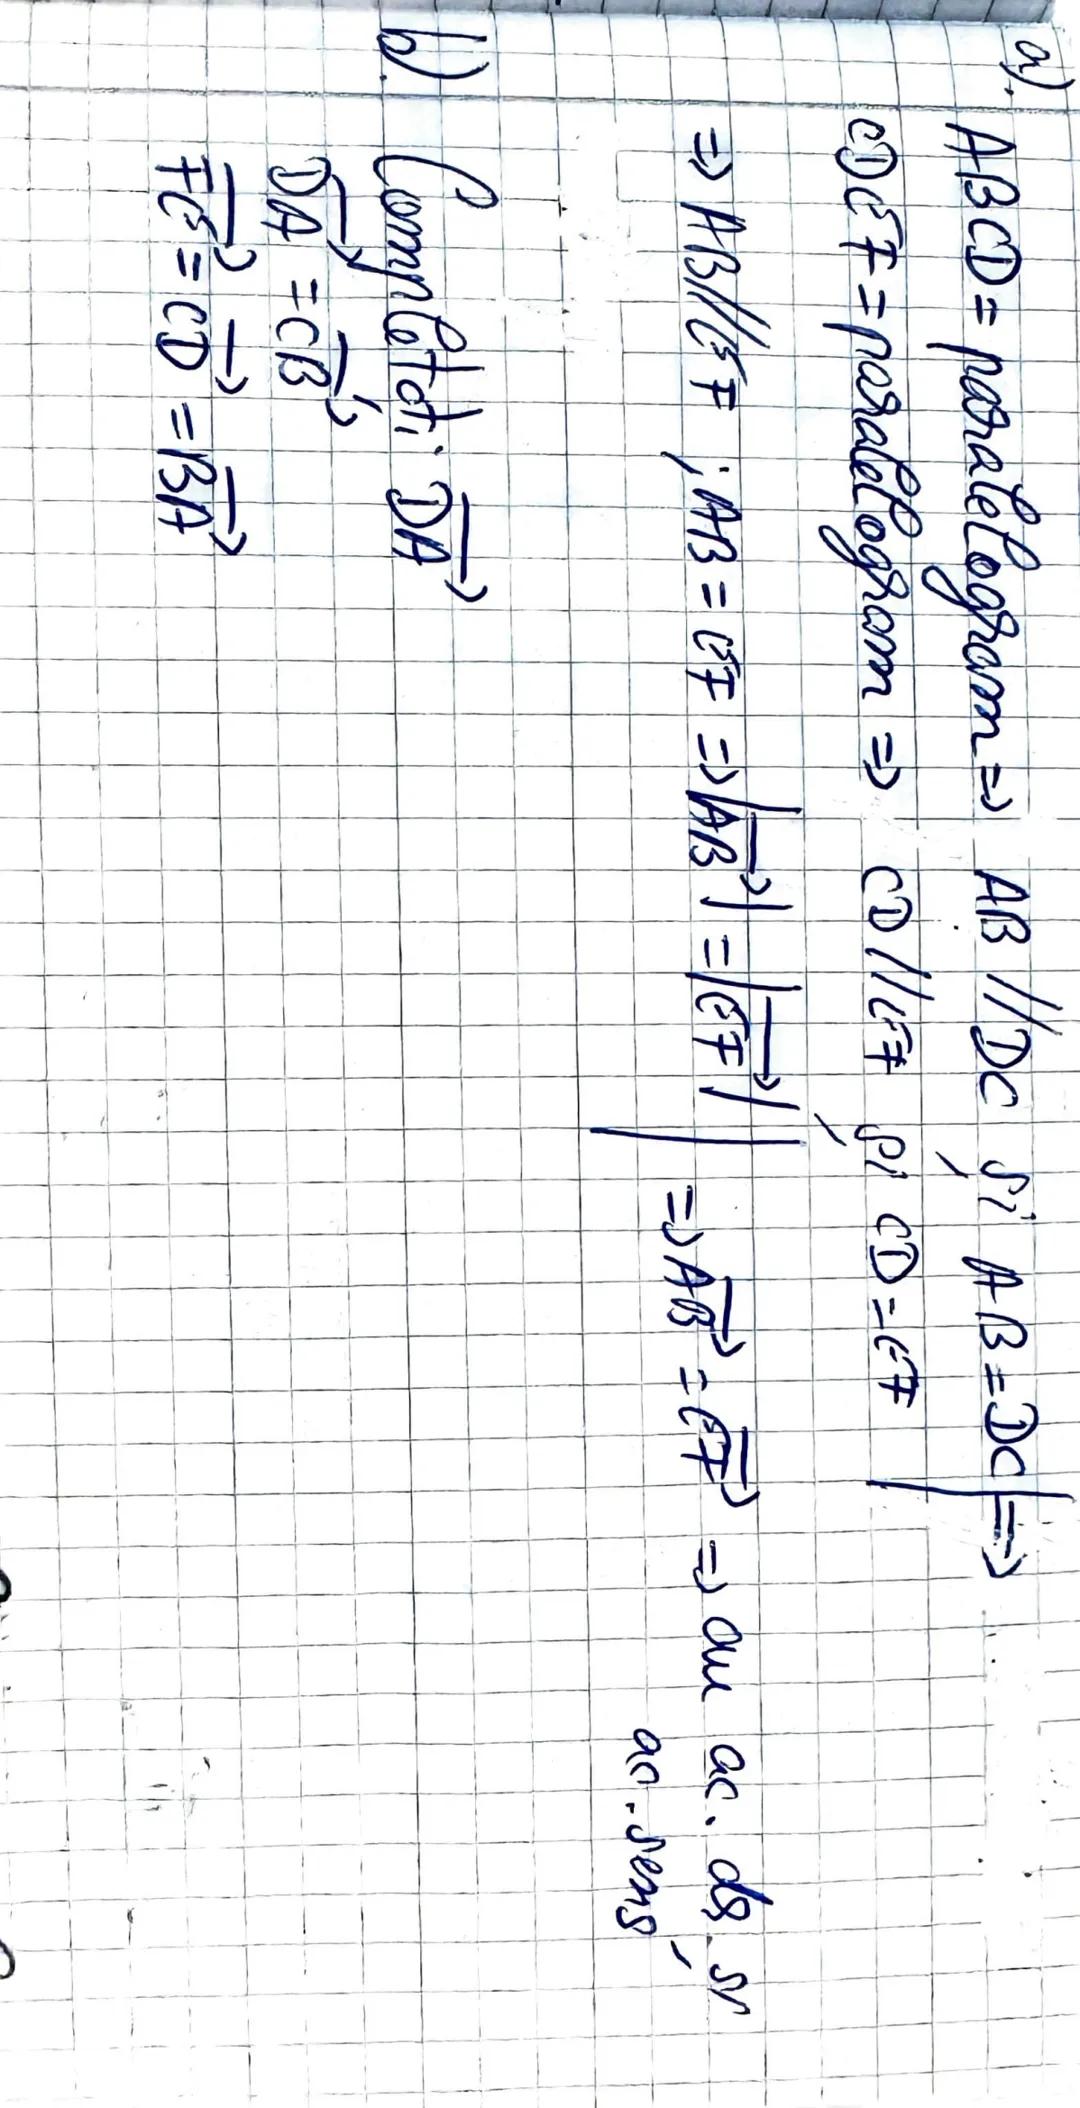 a). ABCD = paralelogram => AB // DC și AB = DC | =>
CDEF = paralelogram => CD // EF și CD = EF
=> AB // EF ; AB = EF => |AB| = |EF| | => AB = EF => au ac. dg și
ac. sens
b). Completați: DA
DA = CB
FE = CD = BA